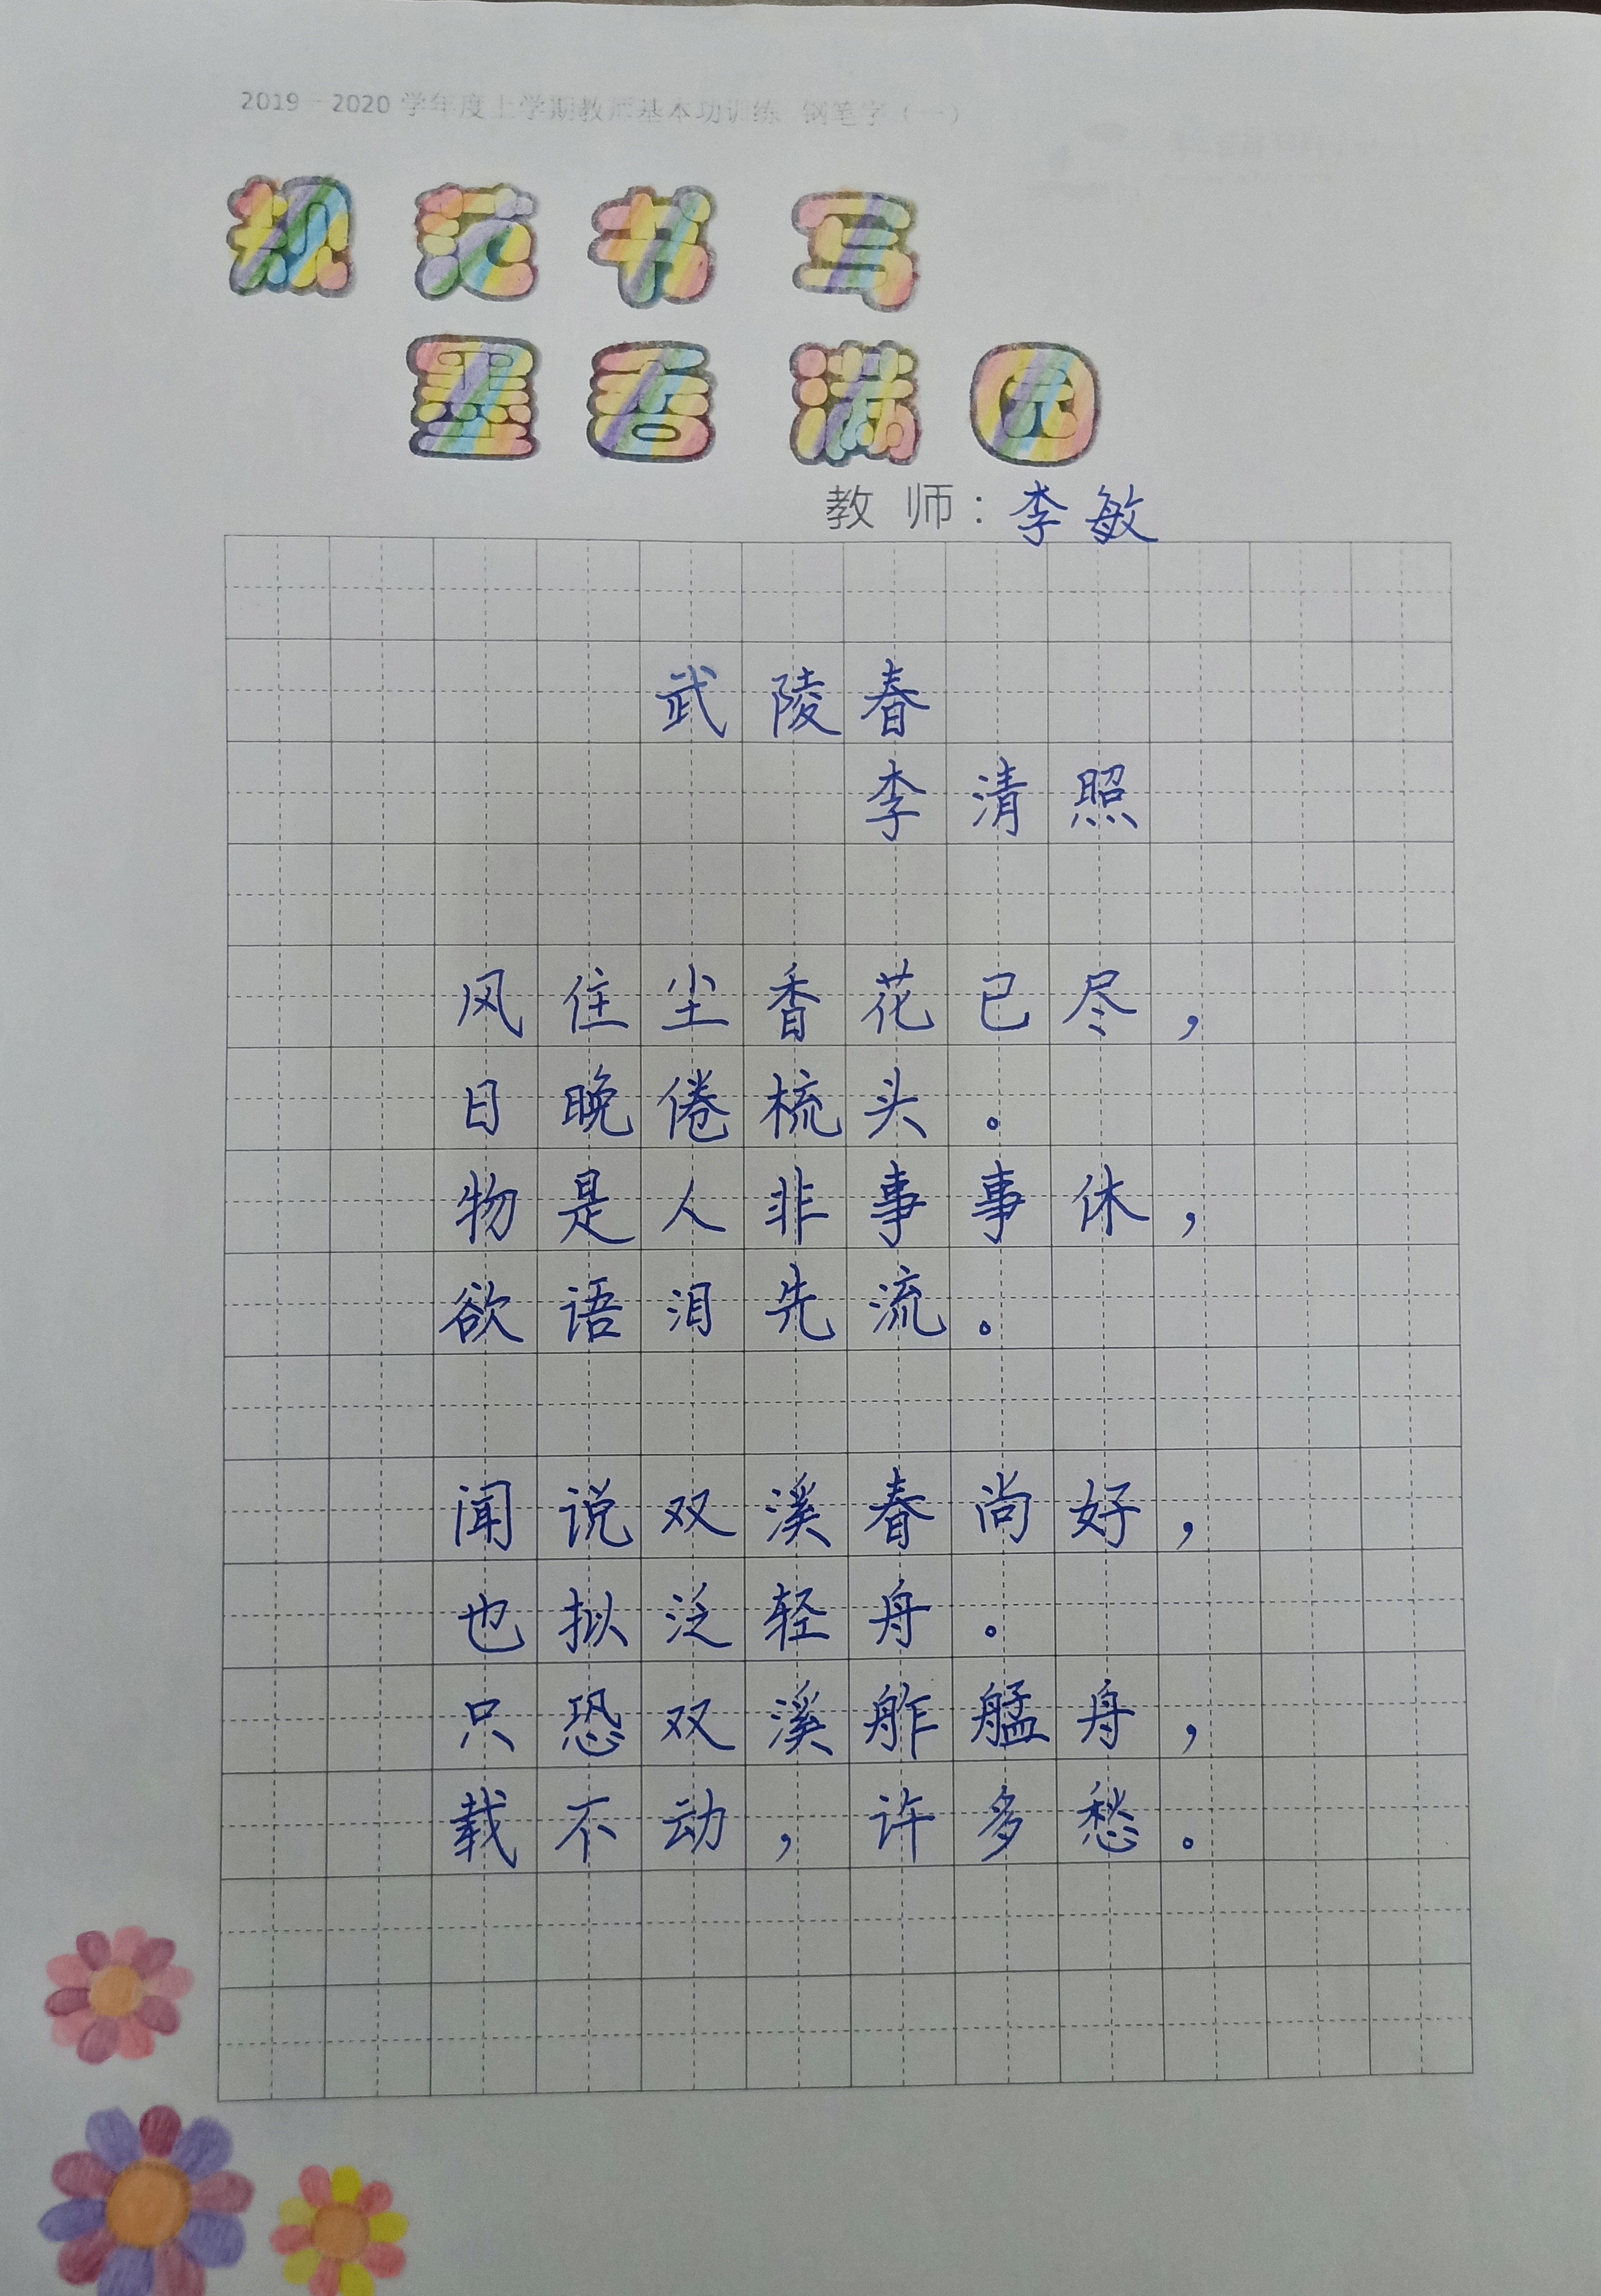 2019－2020 学年度上学期教师基本功训练 钢笔字（一）
规范书写
墨香满园
教 师：李敏
武陵春
李清照
风住尘香花已尽，
日晚倦梳头。
物是人非事事休，
欲语泪先流。
闻说双溪春尚好，
也拟泛轻舟。
只恐双溪舴艋舟，
载不动，许多愁。